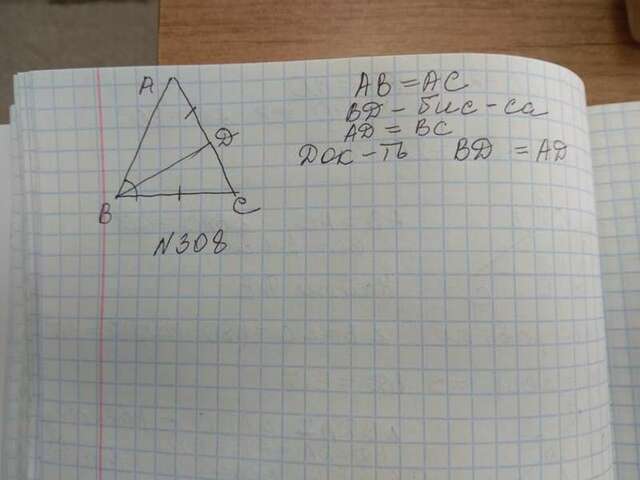 A
D
B
C
N308
AB = AC
BD - бис-са
AD = BC
Док-ть BD = AD